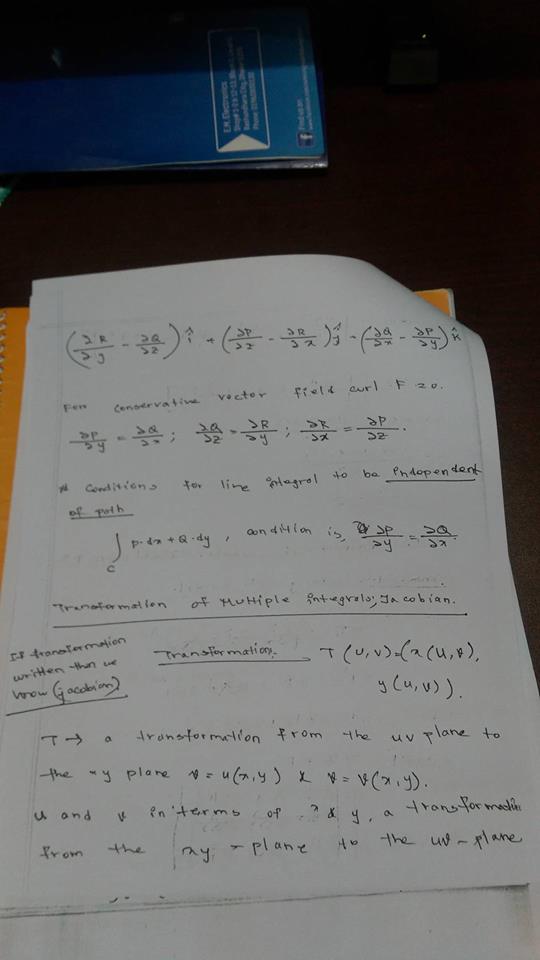 E.M. Electronics
Find us on
(∂R/∂y - ∂Q/∂z) î + (∂P/∂z - ∂R/∂x) ĵ + (∂Q/∂x - ∂P/∂y) k̂
For conservative vector field curl F = 0.
∂P/∂y = ∂Q/∂x ; ∂Q/∂z = ∂R/∂y ; ∂R/∂x = ∂P/∂z .
* Conditions for line integral to be independent
of path
∫C P.dx + Q.dy , condition is, ∂P/∂y = ∂Q/∂x.
Transformation of Multiple integrals; Jacobian.
If transformation
written then we
know (jacobian)
Transformation. T(u,v) = (x(u,v),
y(u,v)).
T → a transformation from the uv plane to
the xy plane v = u(x,y) & v = v(x,y).
u and v in terms of x & y, a transformation
from the xy-plane to the uv-plane